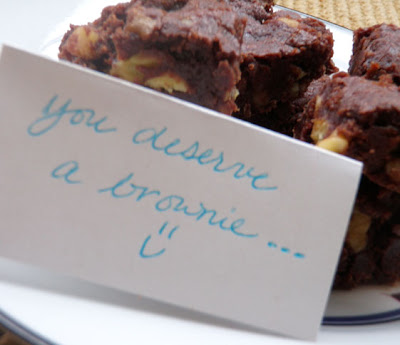 You deserve
a brownie...